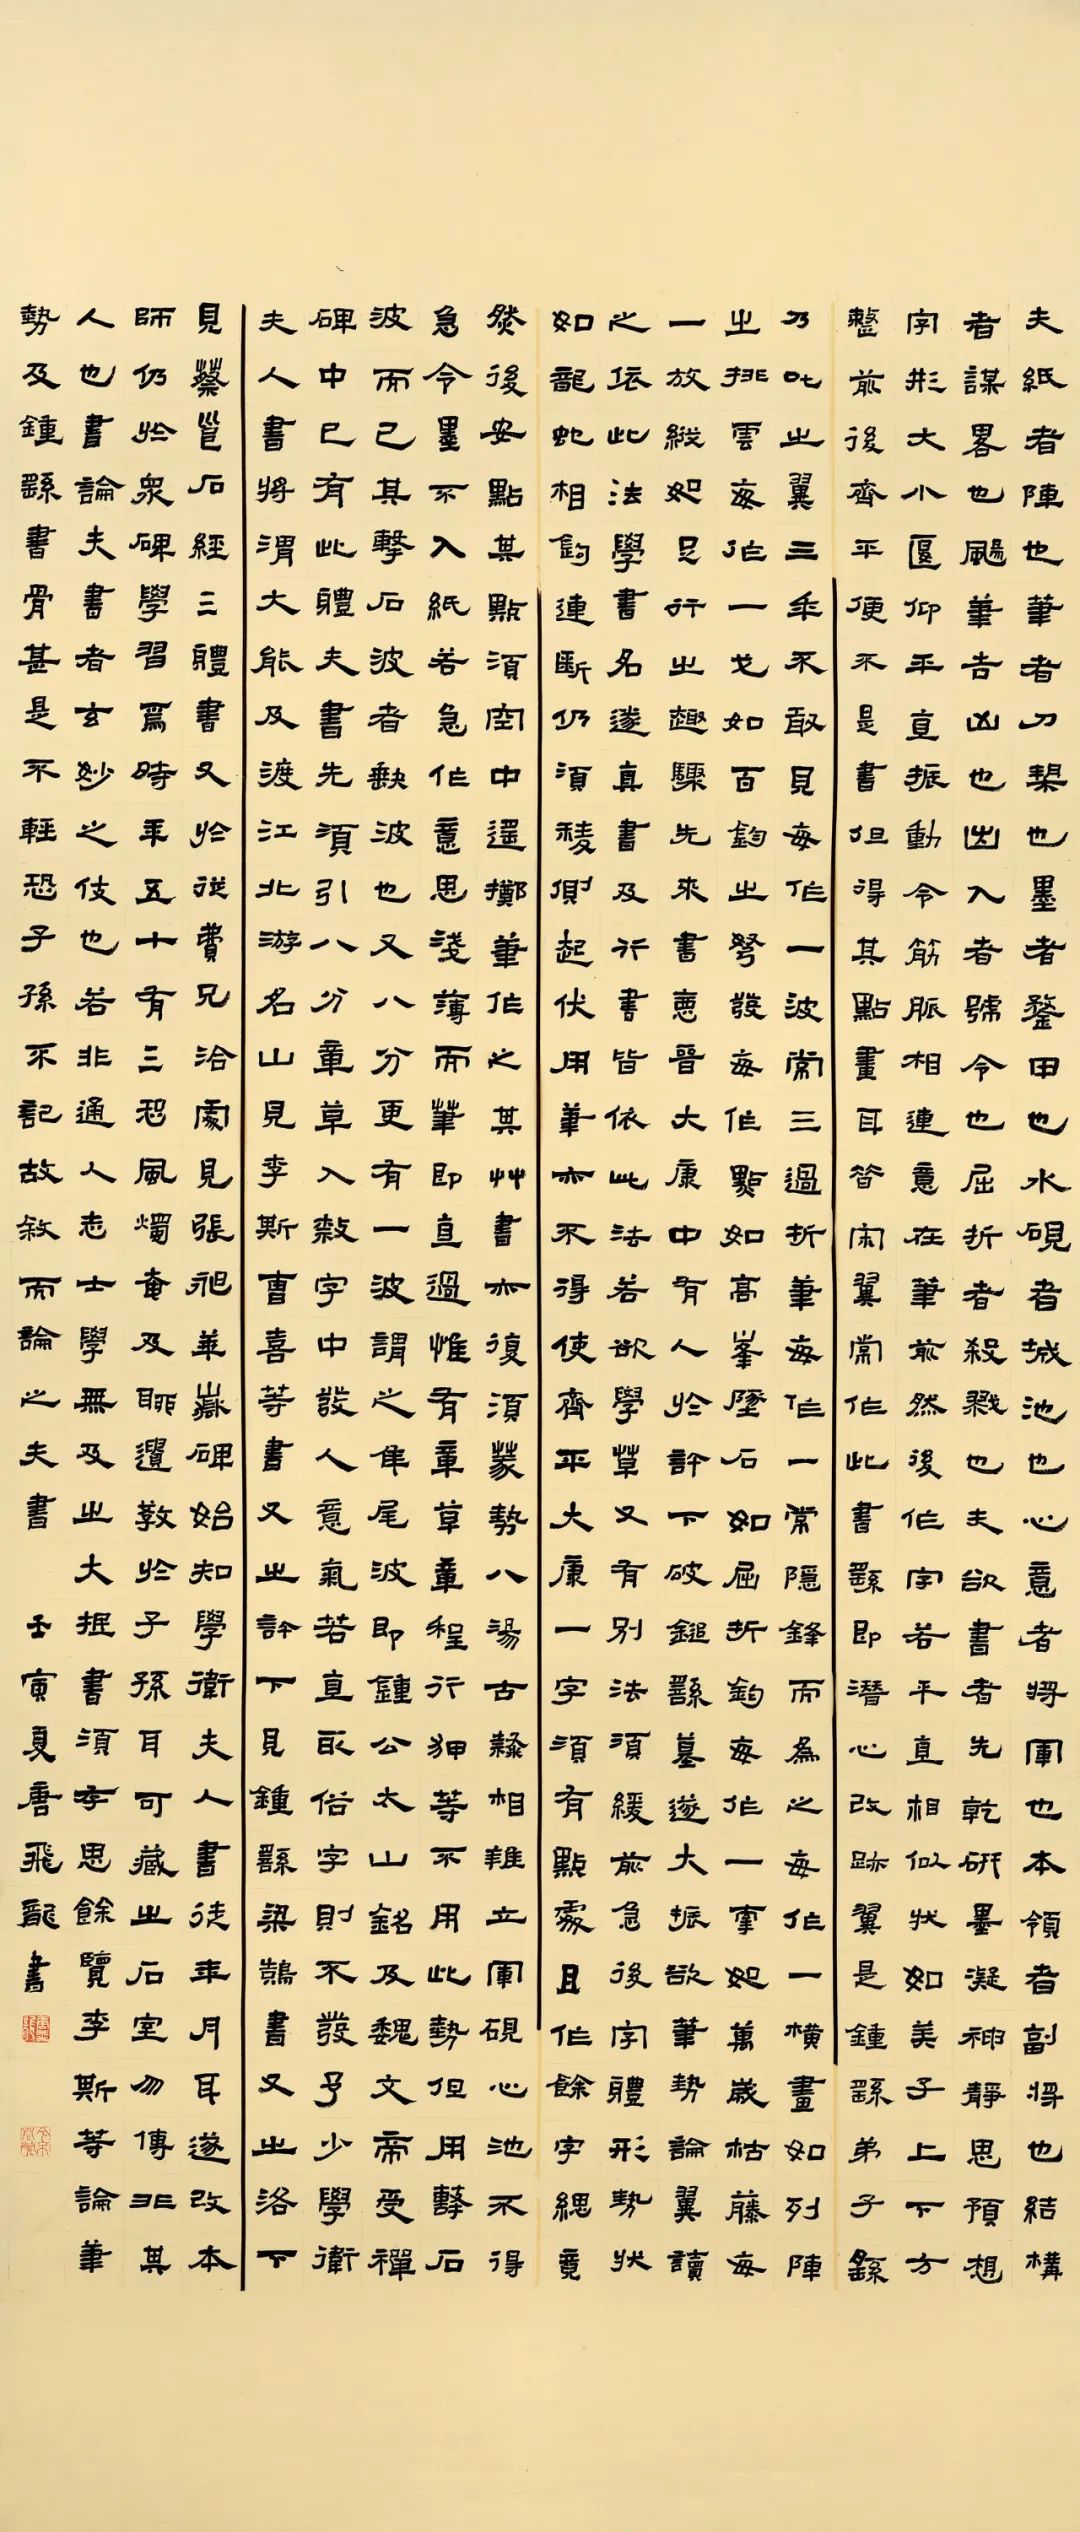 夫紙者陣也筆者刀槊也墨者鍪甲也水硯者城池也心意者將軍也本領者副將也結構
者謀畧也颺筆吉凶也出入者號令也屈折者殺戮也夫欲書者先乾研墨凝神靜思預想
字形大小偃仰平直振動令筋脈相連意在筆前然後作字若平直相似狀如美子上下方
整前後齊平便不是書但得其點畫耳昔宋翼常作此書繇即潛心改跡翼是鍾繇弟子繇
乃叱之翼三年不敢見每作一波常三過折筆每作一常隱鋒而為之每作一橫畫如列陣
之排雲每作一戈如百鈞之弩發每作點如高峯墜石如屈折鈎每作一牽如萬歲枯藤每
一放縱如足行之趣驟先來書惡晉大康中有人於許下破鎚繇墓遂大振欲筆勢論翼讀
之依此法學書名遂真書及行書皆依此法若欲學草又有別法須緩前急後字體形勢狀
如龍虵相鉤連斷仍須稜側起伏用筆亦不得使齊平大康一字須有點處且作餘字總竟
然後安點其點須空中遙擲筆作之其艸書亦復須篆勢八湯古隸相雜立軍硯心池不得
急令墨不入紙若急作意思淺薄而筆即直過惟有章草章程行狎等不用此勢但用擊石
波而已其擊石波者缺波也又八分更有一波謂之隼尾波即鍾公太山銘及魏文帝受禪
碑中已有此體夫書先須引八分章草入隸字中發人意氣若直取俗字則不發予少學衛
夫人書將謂大能及渡江北游名山見李斯曹喜等書又之許下見鍾繇梁鵠書又之洛下
見蔡邕石經三體書又於從費兄洽處見張昶華嶽碑始知學衛夫人書徒年月耳遂改本
師仍於眾碑學習焉時年五十有三恐風燭奄及聊遺教於子孫耳可藏之石室勿傳非其
人也書論夫書者玄妙之伎也若非通人志士學無及之大抵書須存思餘覽李斯等論筆
勢及鍾繇書骨甚是不輕恐子孫不記故敘而論之夫書 壬寅夏唐飛龍書